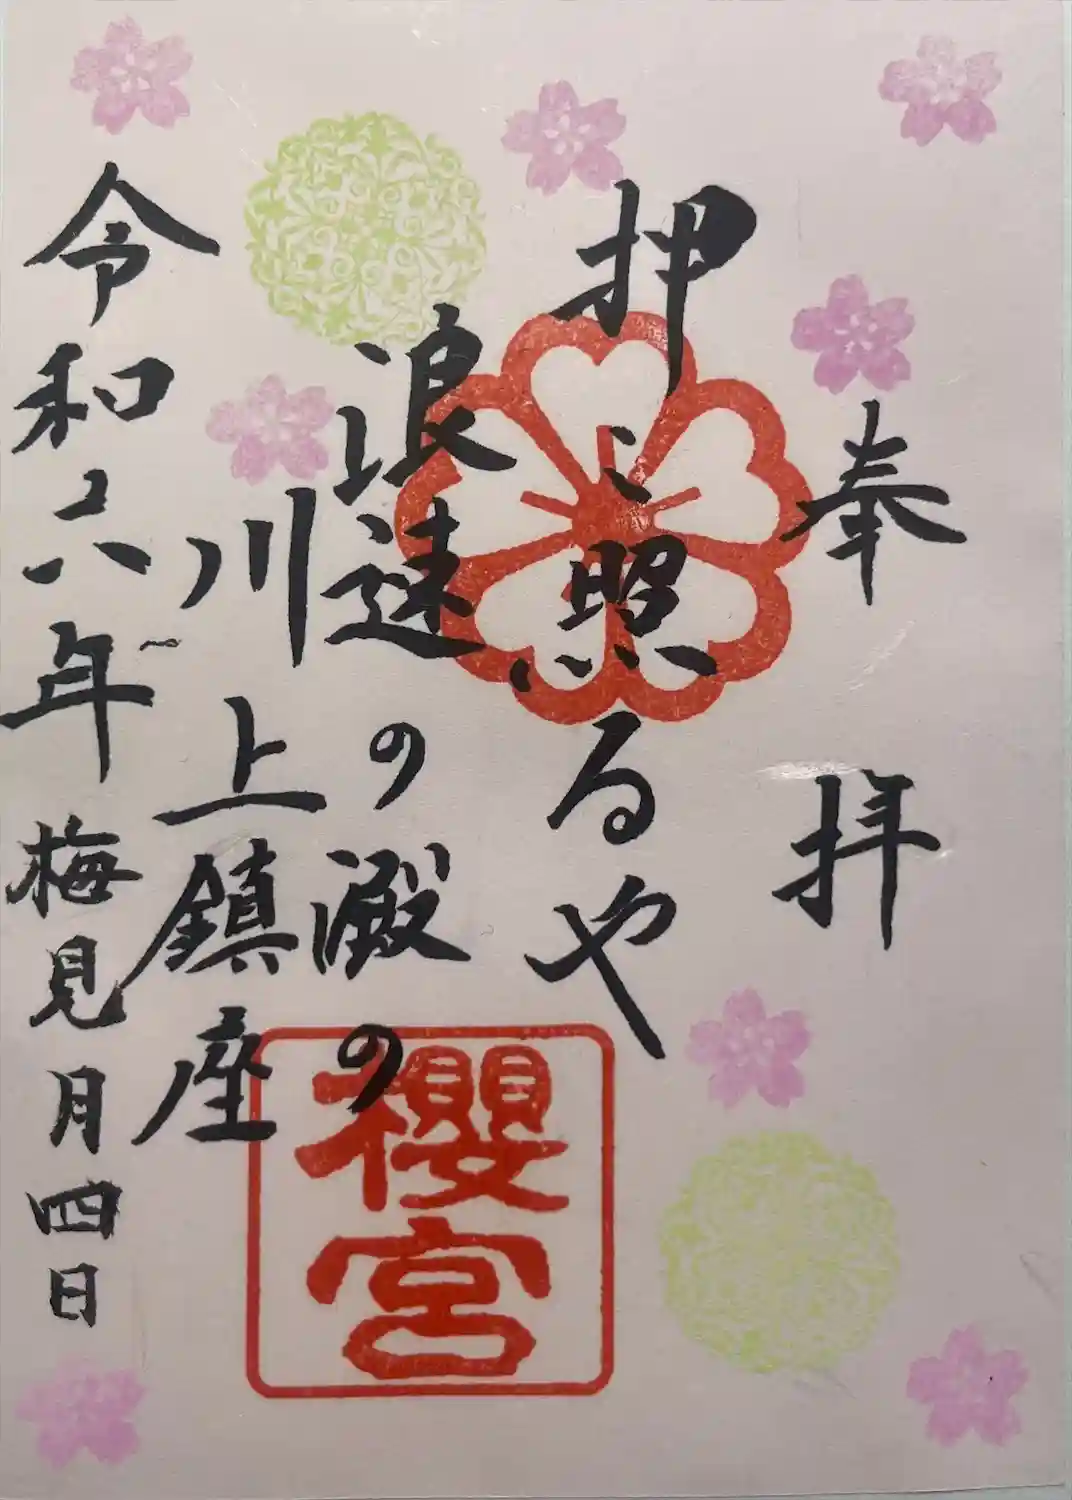 奉拝
押ゝ照るや
浪速の澱の
川上鎮座
令和六年梅見月四日
櫻宮